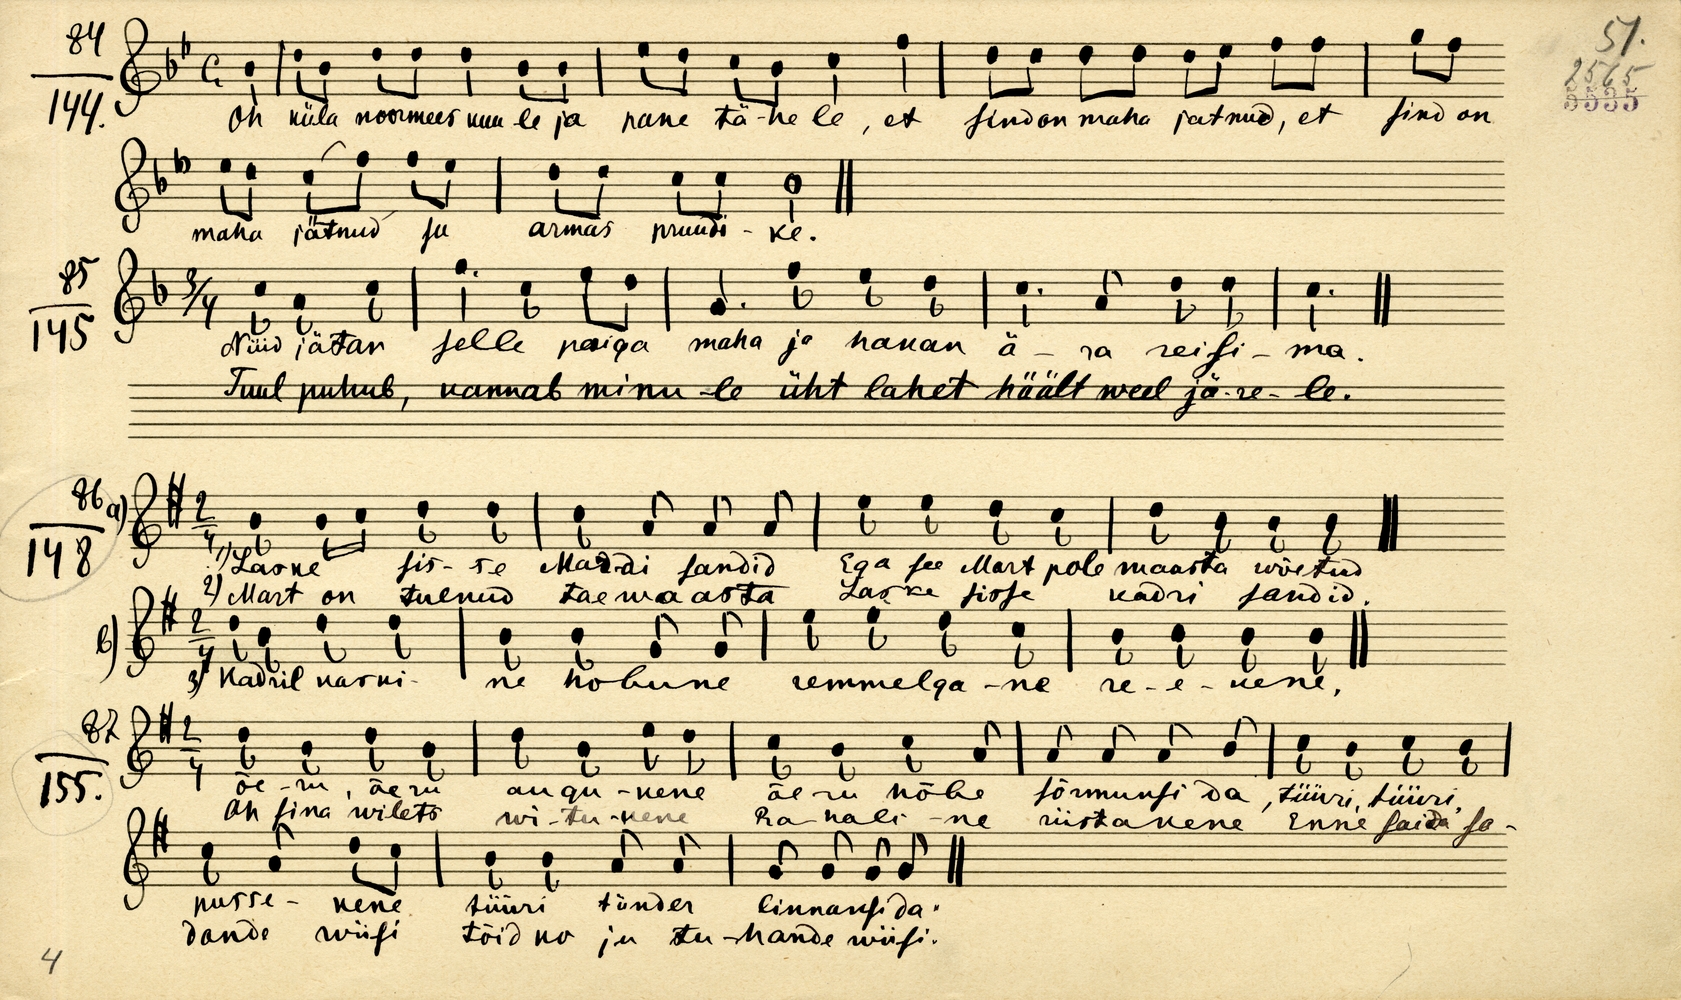 84
144.
51.
2565
5535
Oh küla noormees kuu le ja pane tä-he le, et sind on maha jatnud, et sind on
maha jätnud su armas pruudi - ke.
85
145
3/4
Nüüd jätan selle paiga maha ja hakan ä - ra reisi - ma.
Tuul puhub, kannab minu - le üht lahet häält weel jä - re - le.
86 a)
148
2/4
1) Laske sis - se Mardi sandid Ega see Mart pole maasta wõetud
2) Mart on tulnud taewaasta Laske sisse kadri sandid.
b)
2/4
3) Kadril karki - ne hobune remmelga - ne re - e - kene,
87
155.
2/4
õe - ru, õeru augu - kene õe ru hõbe sõrmuksi da, tüüri, tüüri,
Oh sina wilets wi - tu - kene Ra - hali - ne riistakene Enne saida sa -
pusse - kene tüüri tünder linnaksida.
dande wiisi tõid ko ju tu - hande wiisi.
4